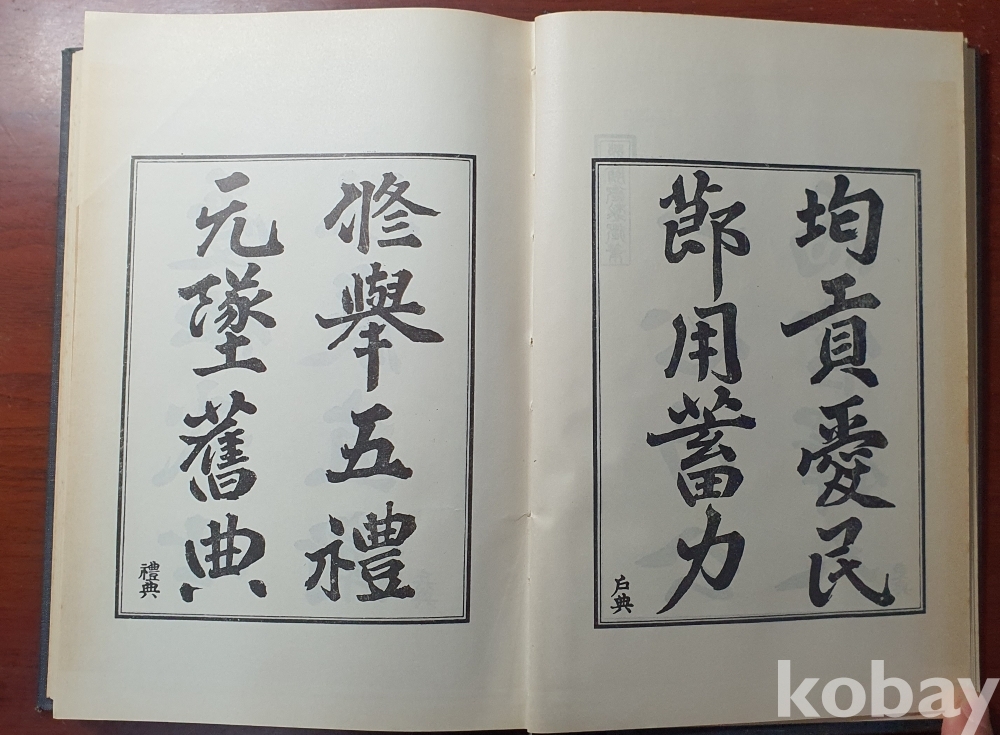 均貢愛民
節用蓄力
戶典
修擧五禮
无墜舊典
禮典
kobay